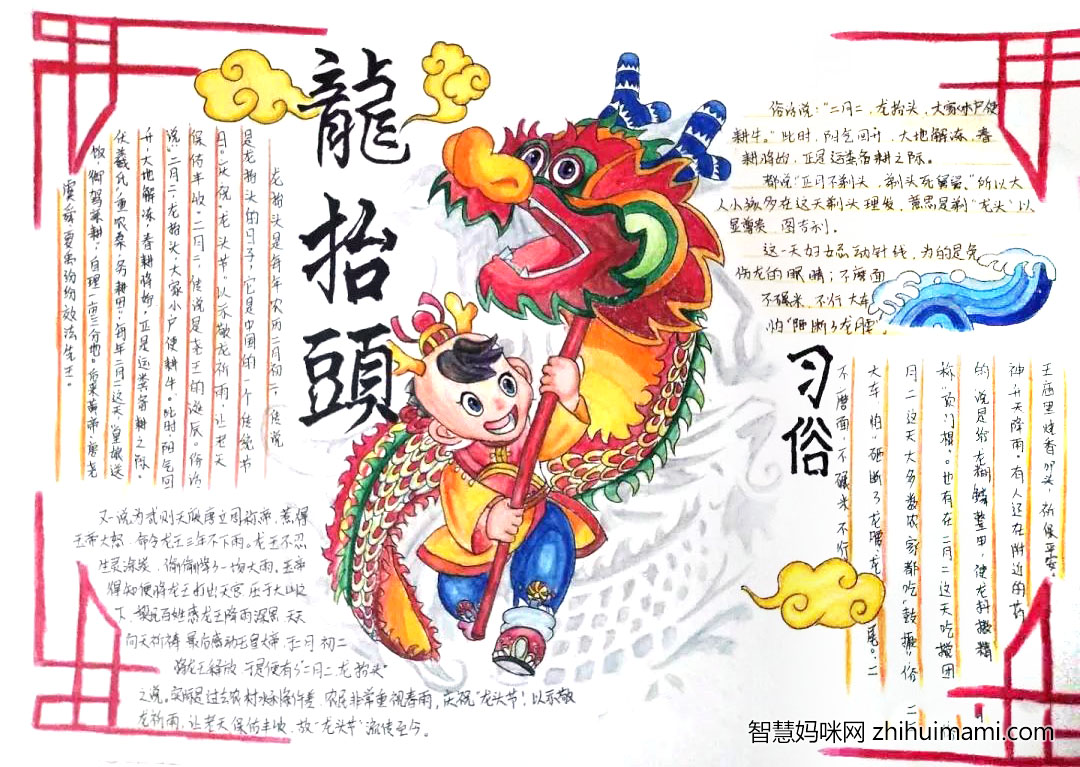 龍抬頭
龙抬头是每年农历二月初二，传说
是龙抬头的日子，它是中国的一个传统节
日。庆祝"龙头节"。以示敬龙祈雨，让老天
保佑丰收。二月二，传说是尧王的诞辰。俗话
说"二月二，龙抬头，大家小户使耕牛。"此时，阳气回
升，大地解冻，春耕将始，正是运粪备耕之际。
伏羲氏，重农桑，务耕田。每年二月二这天，皇娘送
饭，御驾亲耕，自理一亩三分地。后来黄帝、唐尧
虞舜、夏禹纷纷效法先王。
又一说为武则天废唐立周称帝，惹得
玉帝大怒，命令龙王三年不下雨。龙王不忍
生灵涂炭，偷偷降了一场大雨。玉帝
得知便将龙王打出天宫，压于大山之
下，黎民百姓感龙王降雨深恩，天天
向天祈祷，最后感动玉皇大帝，于二月初二
将龙王释放，于是便有了"二月二，龙抬头"
之说。实际是过去农村水利条件差，农民非常重视春雨，庆祝"龙头节"，以示敬
龙祈雨，让老天保佑丰收，故"龙头节"流传至今。
俗话说："二月二，龙抬头，大家小户使
耕牛。"此时，阳气回升，大地解冻，春
耕将始，正是运粪备耕之际。
都说"正月不剃头，剃头死舅舅。"所以大
人小孩多在这天剃头理发，意思是剃"龙头"以
显尊贵，图吉利。
这一天妇女忌动针线，为的是免
伤龙的眼睛；不磨面
不碾米，不行大车
怕"砸断了龙腰"。
习俗
王庙里烧香叩头，祈保平安。
神升天降雨。有人还在附近的药
的说是给龙糊鳞整甲，使龙抖擞精
称"顶门棍"。也有在二月二这天吃撒团
月二这天大多数农家都吃"鼓撅"，俗
大车，怕"砸断了龙腰、龙尾。"二
不磨面，不碾米，不行
智慧妈咪网 zhihuimami.com